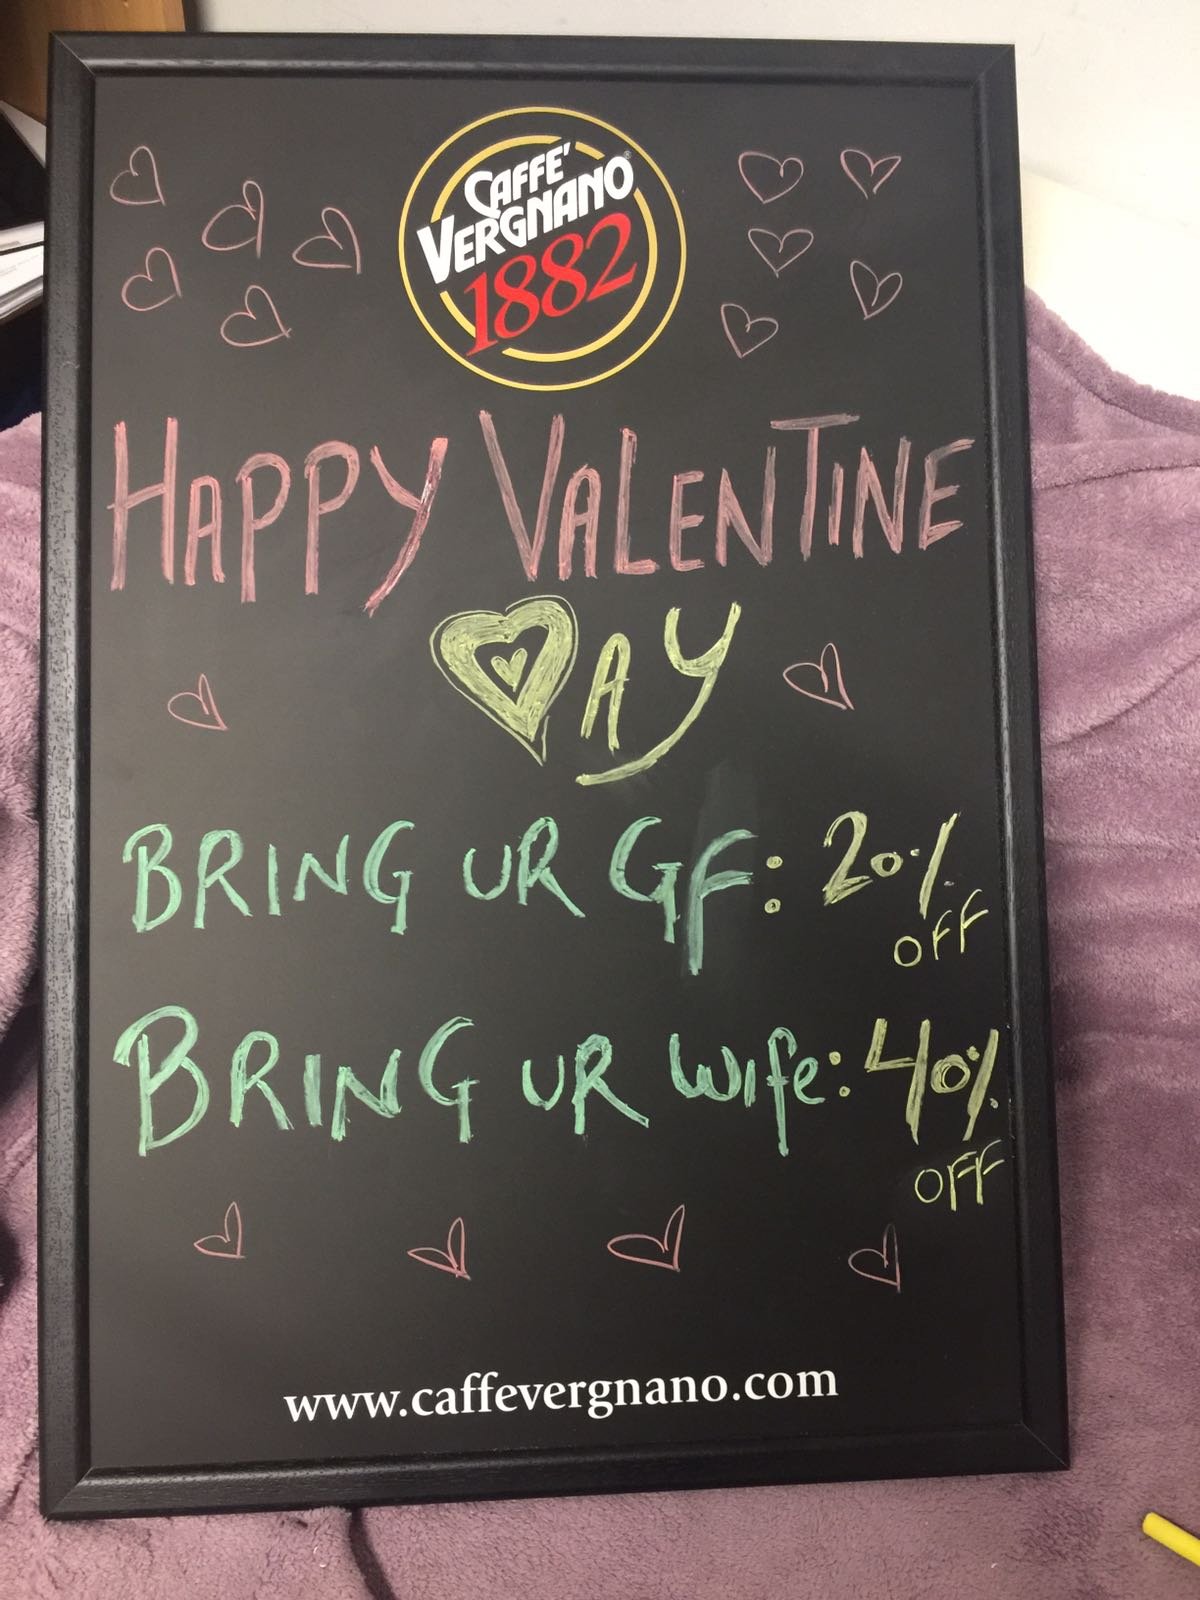 CAFFE'
VERGNANO®
1882
HAPPY VALENTINE
DAY
BRING UR GF: 20%
OFF
BRING UR Wife: 40%
OFF
www.caffevergnano.com